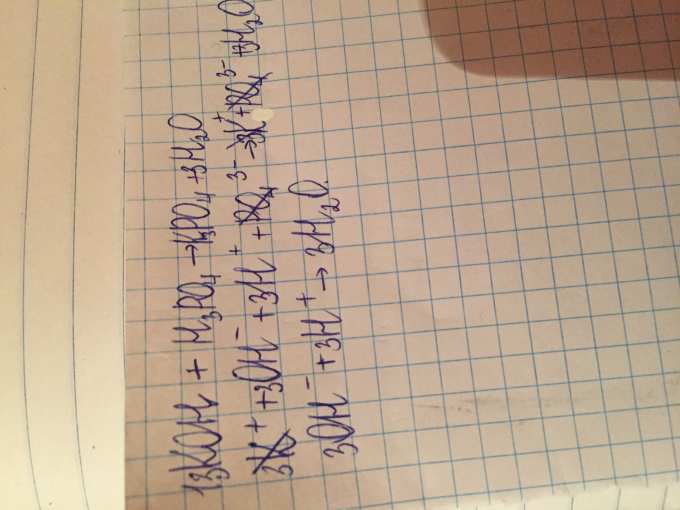 1) 3KOH + H₃PO₄ → K₃PO₄ + 3H₂O
3K⁺ + 3OH⁻ + 3H⁺ + PO₄³⁻ → 3K⁺ + PO₄³⁻ + 3H₂O
3OH⁻ + 3H⁺ → 3H₂O.